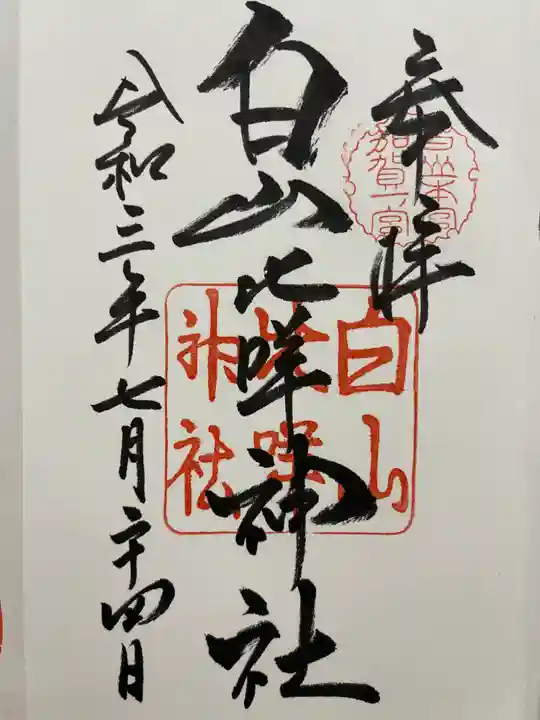 奉拝
白山本宮
加賀一宮
白山比咩神社
白山
比咩
神社
令和三年七月二十四日